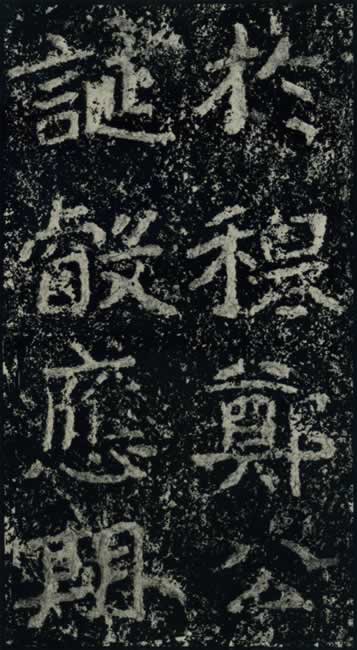 於穆鄭公
誕叡應期